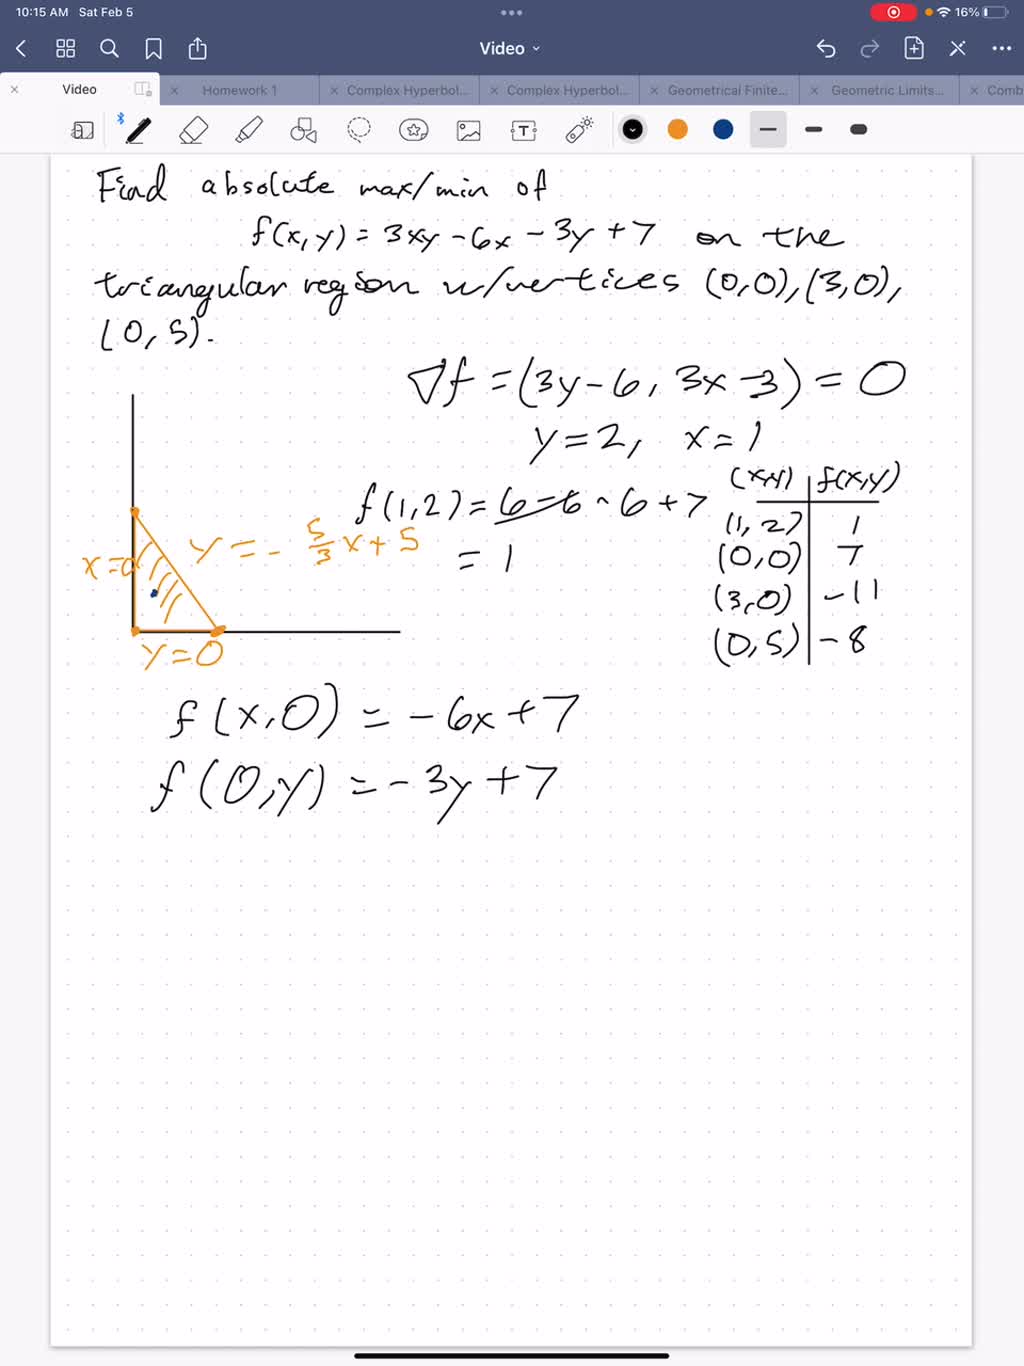 10:15 AM Sat Feb 5
16%
Video
Video
Homework 1
Complex Hyperbol...
Complex Hyperbol...
Geometrical Finite...
Geometric Limits...
Comb
Find absolute max/min of
f(x,y) = 3xy - 6x - 3y + 7 on the
triangular region w/vertices (0,0), (3,0),
(0,5).
∇f = (3y-6, 3x-3) = 0
y=2, x=1
(x,y) f(x,y)
f(1,2) = 6-6-6+7
= 1
(1,2) 1
(0,0) 7
(3,0) -11
(0,5) -8
x=0
y = -5/3 x + 5
y=0
f(x,0) = -6x+7
f(0,y) = -3y+7